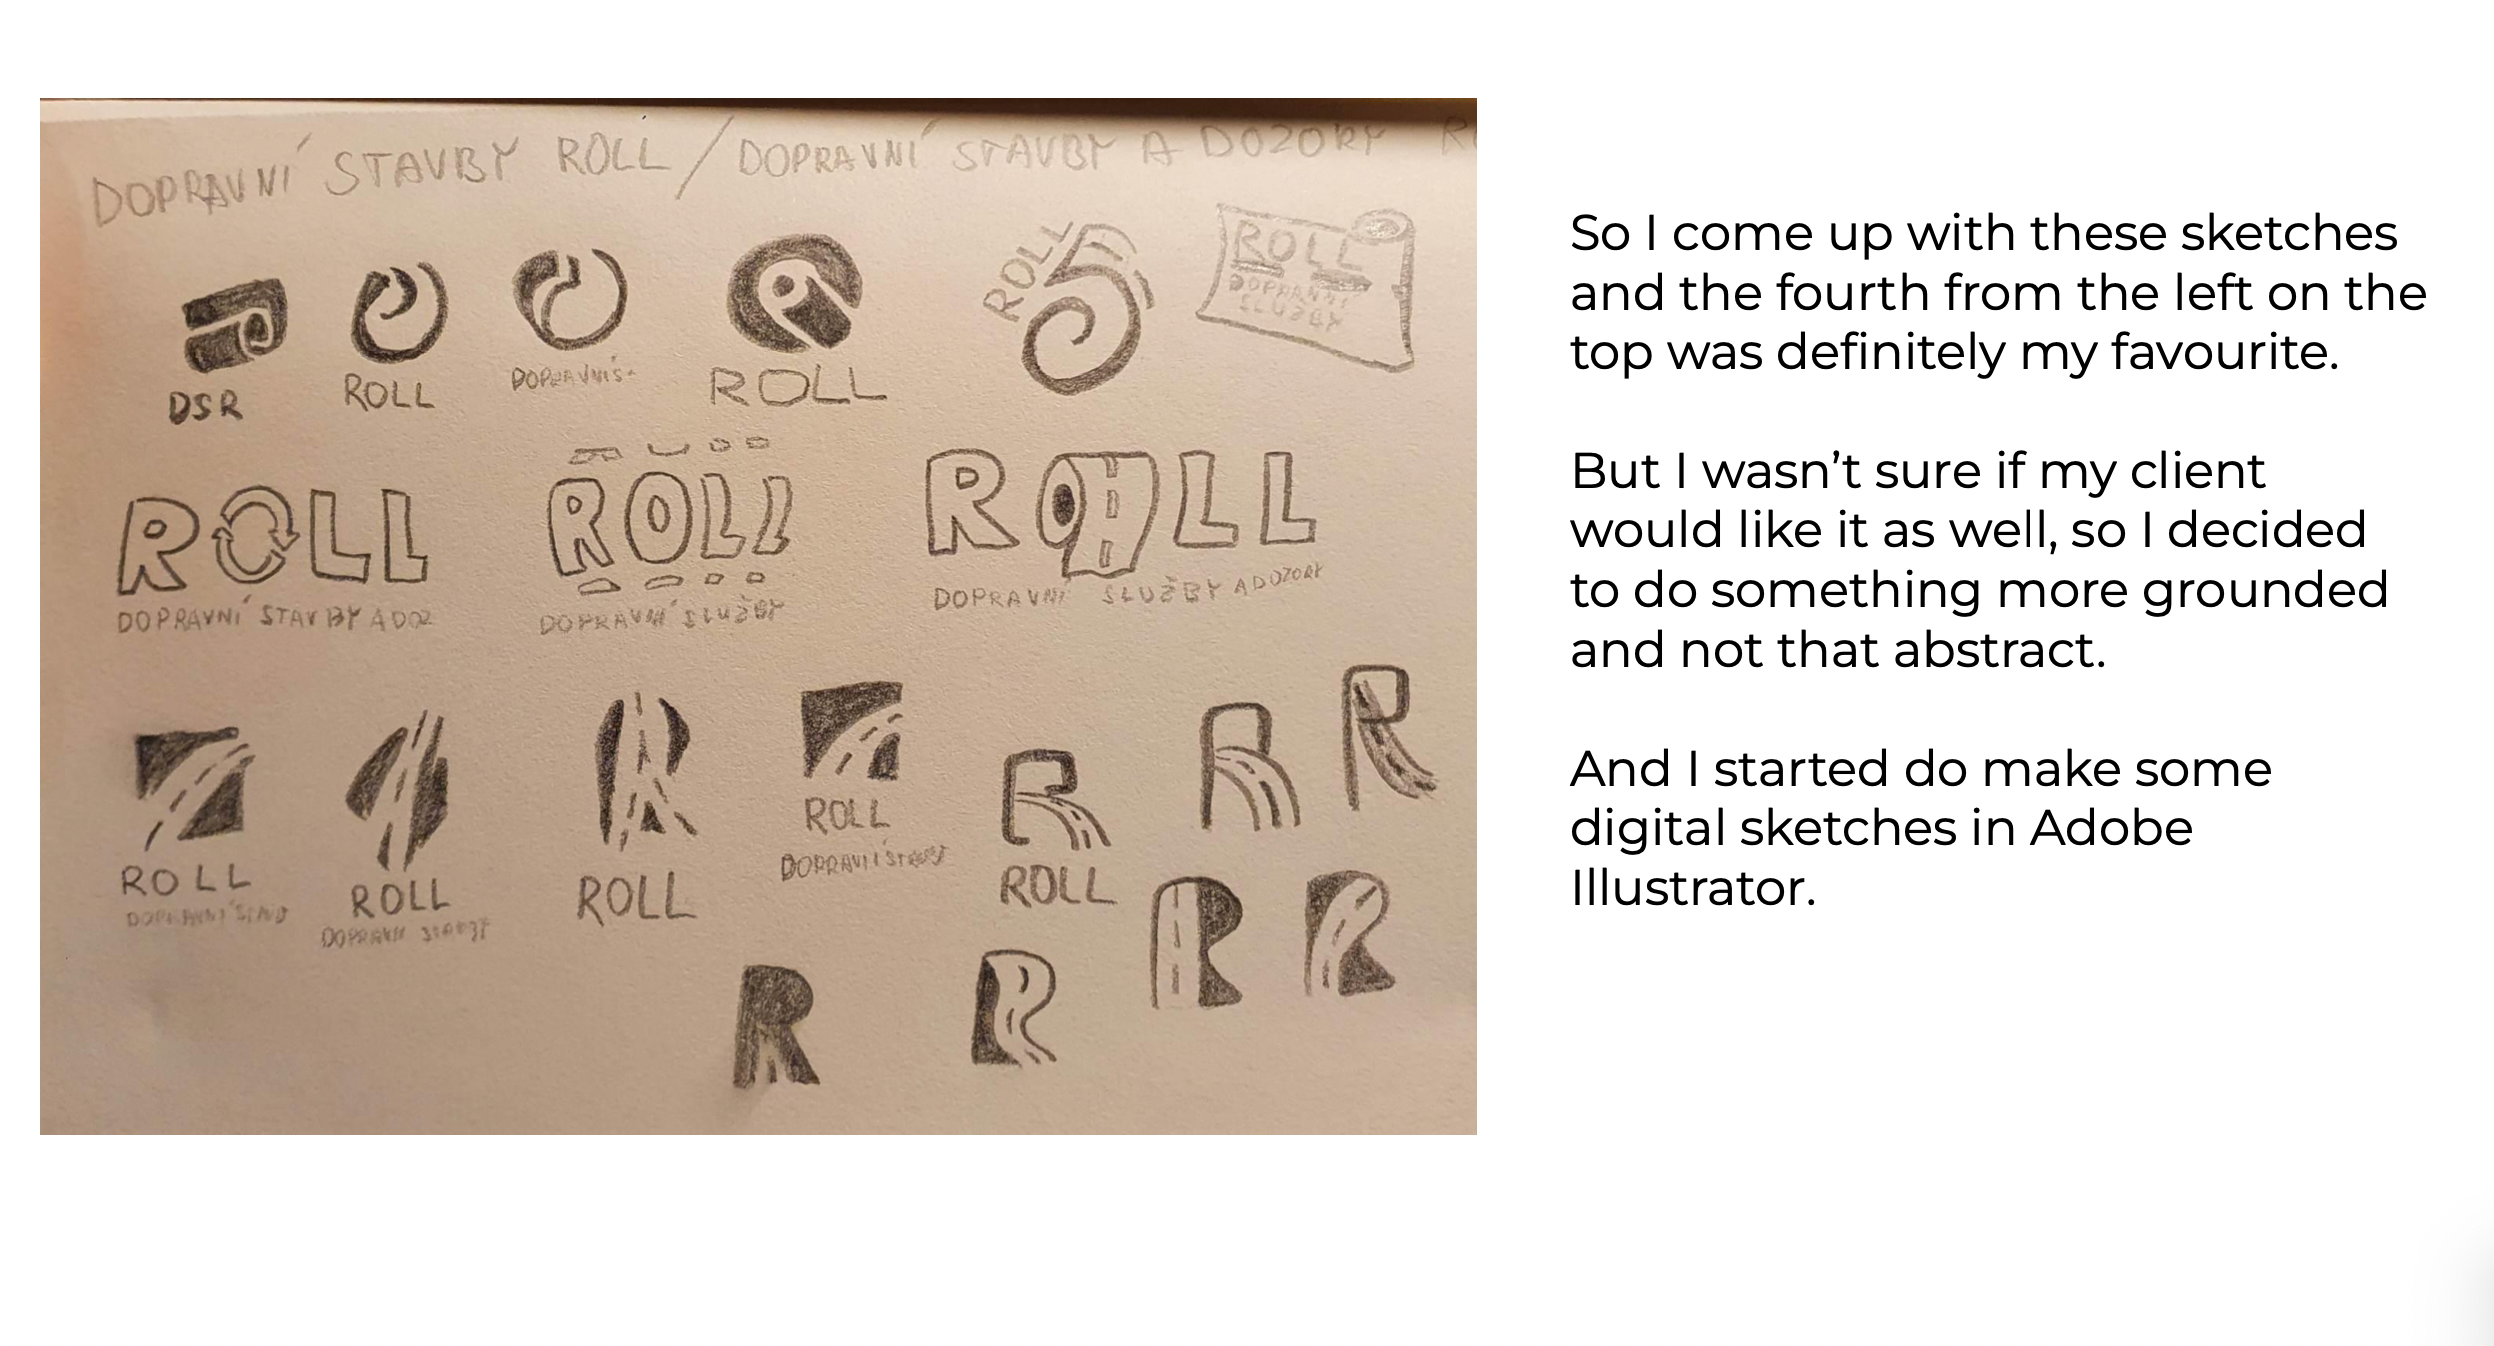 DOPRAVNÍ STAVBY ROLL / DOPRAVNÍ STAVBY A DOZORY
ROLL
ROLL
DOPRAVNÍ
SLUŽBY
DSR
ROLL
DOPRAVNÍ S-
ROLL
ROLL
DOPRAVNÍ STAVBY A DOZ
ROLL
DOPRAVNÍ SLUŽBY
ROLL
DOPRAVNÍ SLUŽBY A DOZORY
R
R
R
R
ROLL
ROLL
ROLL
ROLL
ROLL
R
R
R
R
So I come up with these sketches
and the fourth from the left on the
top was definitely my favourite.
But I wasn’t sure if my client
would like it as well, so I decided
to do something more grounded
and not that abstract.
And I started do make some
digital sketches in Adobe
Illustrator.